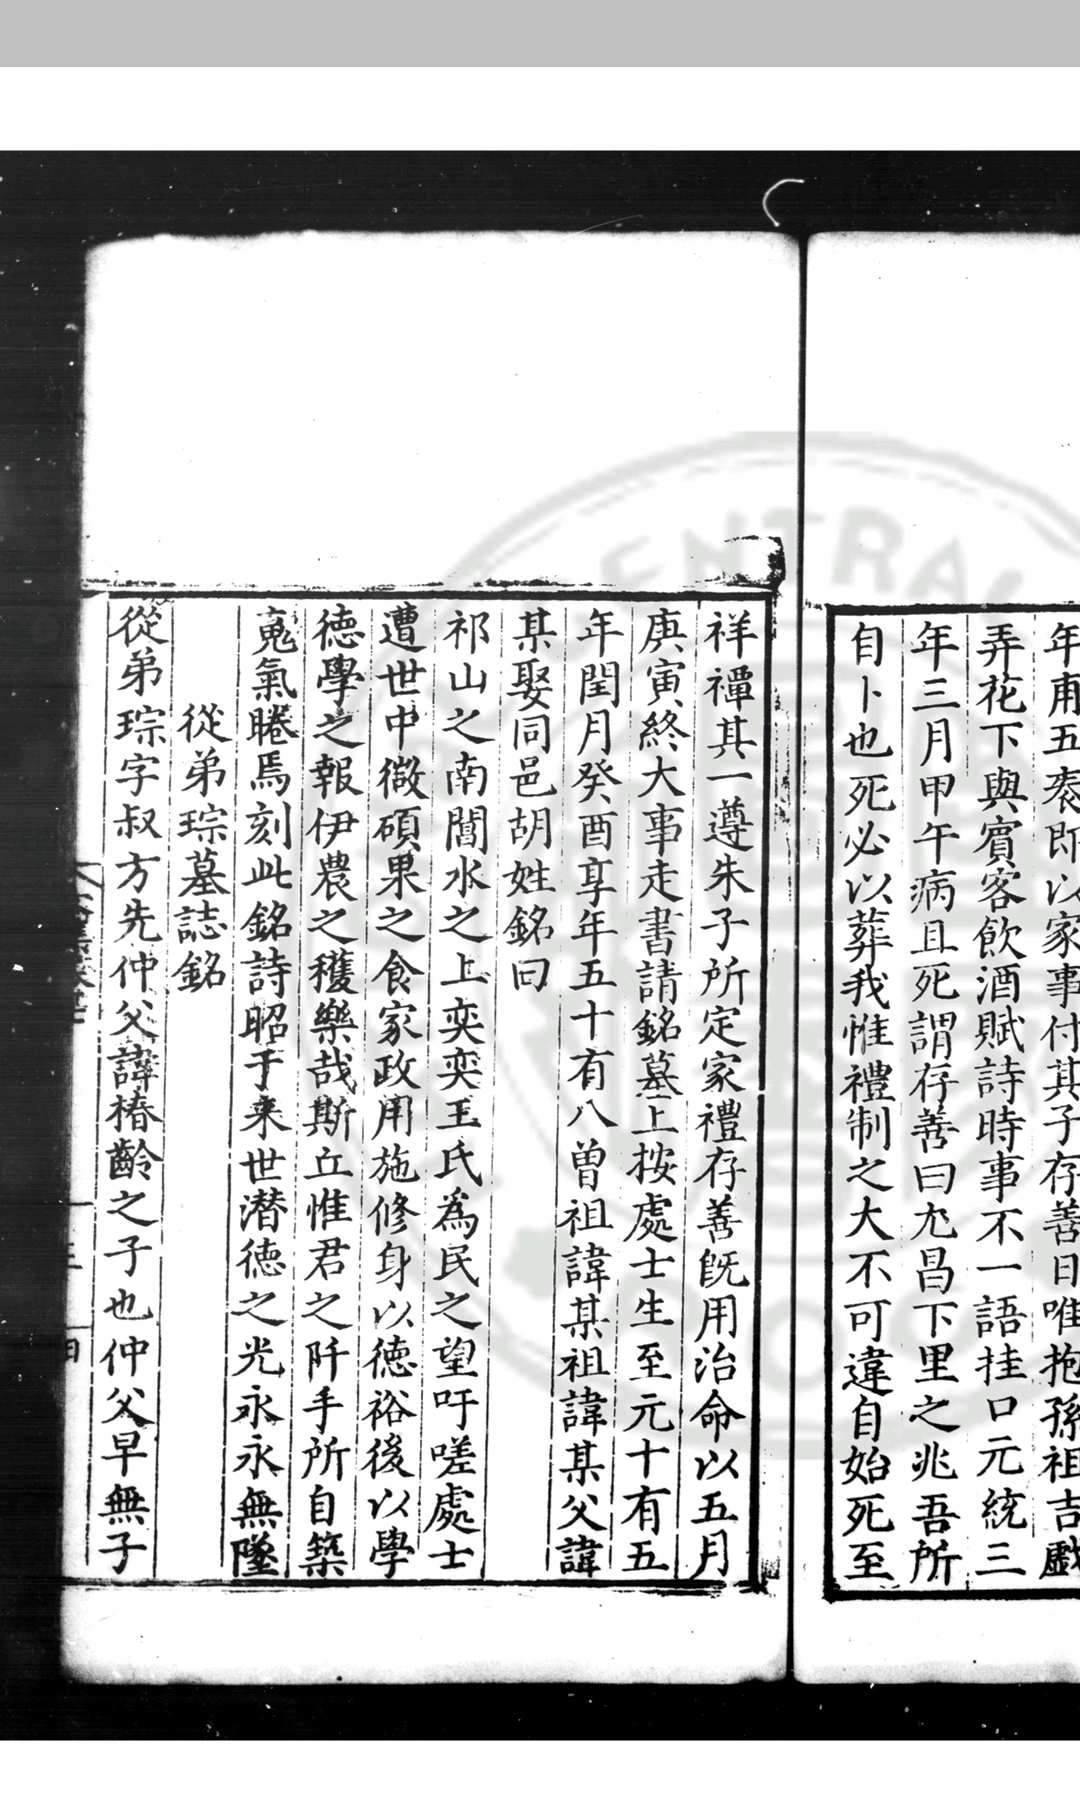 年甫五袠即以家事付其子存善日唯抱孫祖吉戲
弄花下與賓客飲酒賦詩時事不一語挂口元統三
年三月甲午病且死謂存善曰尢昌下里之兆吾所
自卜也死必以葬我惟禮制之大不可違自始死至
祥禫其一遵朱子所定家禮存善旣用治命以五月
庚寅終大事走書請銘墓上按處士生至元十有五
年閏月癸酉享年五十有八曽祖諱某祖諱某父諱
某娶同邑胡姓銘曰
祁山之南閶水之上奕奕王氏為民之望吁嗟處士
遭世中微碩果之食家政用施修身以徳裕後以學
徳學之報伊農之穫樂哉斯丘惟君之阡手所自築
䰟氣睠焉刻此銘詩昭于来世潜徳之光永永無墜
從弟琮墓誌銘
從弟琮字叔方先仲父諱椿齡之子也仲父早無子
CENTRAL